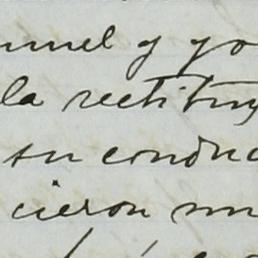 y yo
la rectitu
su conduc
cieron